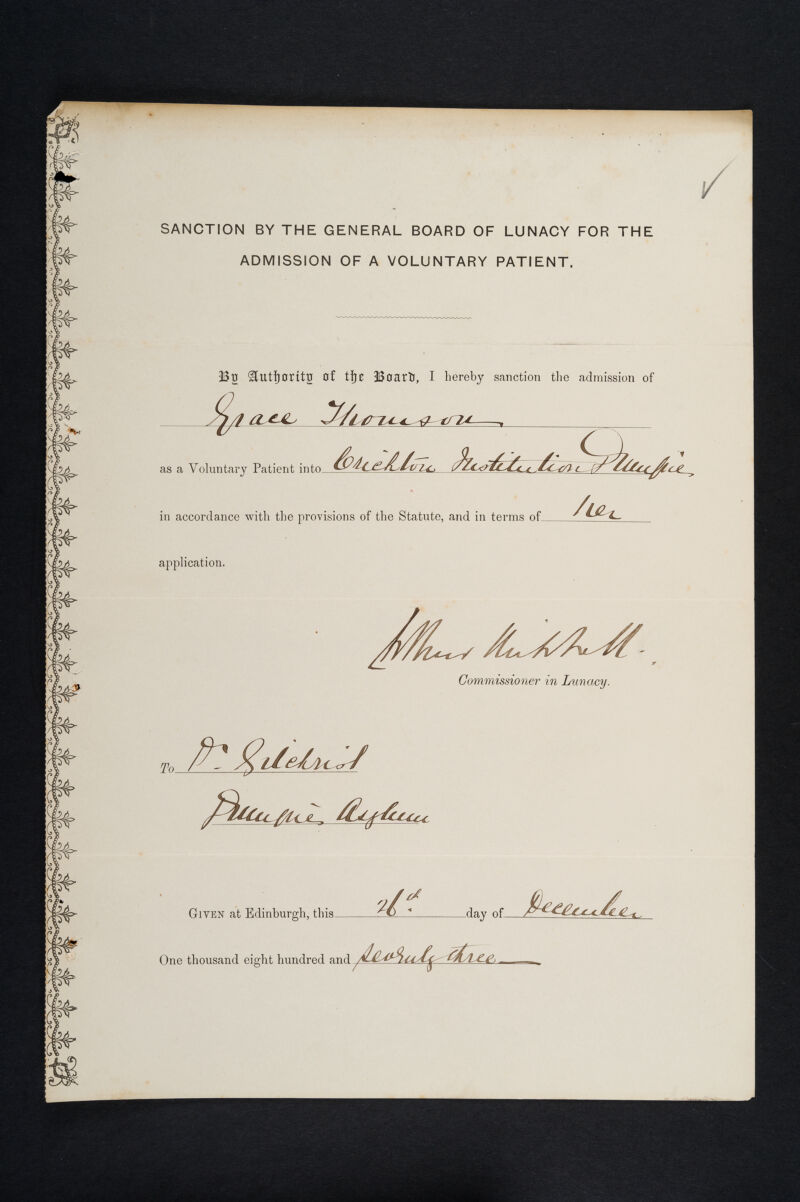 SANCTION BY THE GENERAL BOARD OF LUNACY FOR THE
ADMISSION OF A VOLUNTARY PATIENT.
By Authority of the Board, I hereby sanction the admission of
Grace Thomson
as a Voluntary Patient into Crichton Institution Dumfries
in accordance with the provisions of the Statute, and in terms of her
application.
Arthur Mitchell.
Commissioner in Lunacy.
To Dr. Gilchrist
Dumfries Asylum
GIVEN at Edinburgh, this 26th day of December
One thousand eight hundred and seventy three